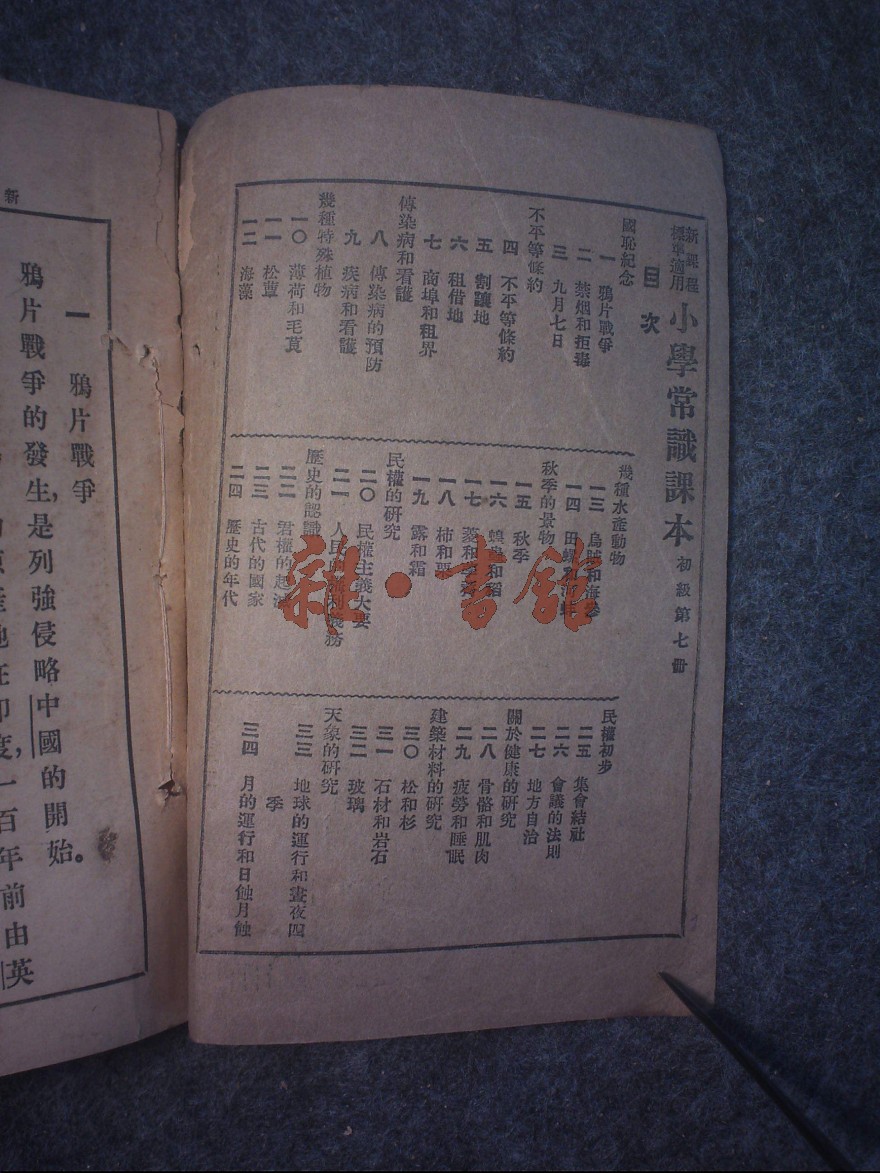 新課程標準適用 小學常識課本 初級第七冊
目次
國恥紀念
一 鴉片戰爭
二 禁烟和拒毒
三 九月七日
不平等條約
四 不平等條約
五 割讓地
六 租借地
七 商埠和租界
傳染病和看護
八 傳染病的預防
九 疾病和看護
幾種特殊植物
一〇 薄荷和毛茛
一一 松蕈
一二 海藻
幾種水產動物
一三 烏賊和海參
一四 田螺和
秋季的景物
一五 秋季
一六 蝗蟲和稻
一七 菱和
一八 柿和栗
一九 露和霜
民權的研究
二〇 民權主義大要
二一 人民的權利義務
歷史的認識
二二 君權的起源
二三 古代的國家
二四 歷史的年代
民權初步
二五 集會結社
二六 會議的法則
二七 地方自治
關於健康的研究
二八 骨骼和肌肉
二九 疲勞和睡眠
建築材料的研究
三〇 松和杉
三一 石材和岩石
三二 玻璃
天象的研究
三三 地球的運行和晝夜四
季
三四 月的運行和日蝕月蝕
新
一 鴉片戰爭
鴉片戰爭的發生,是列強侵略中國的開始。
產地在印度,一百年前由英
雜·書館